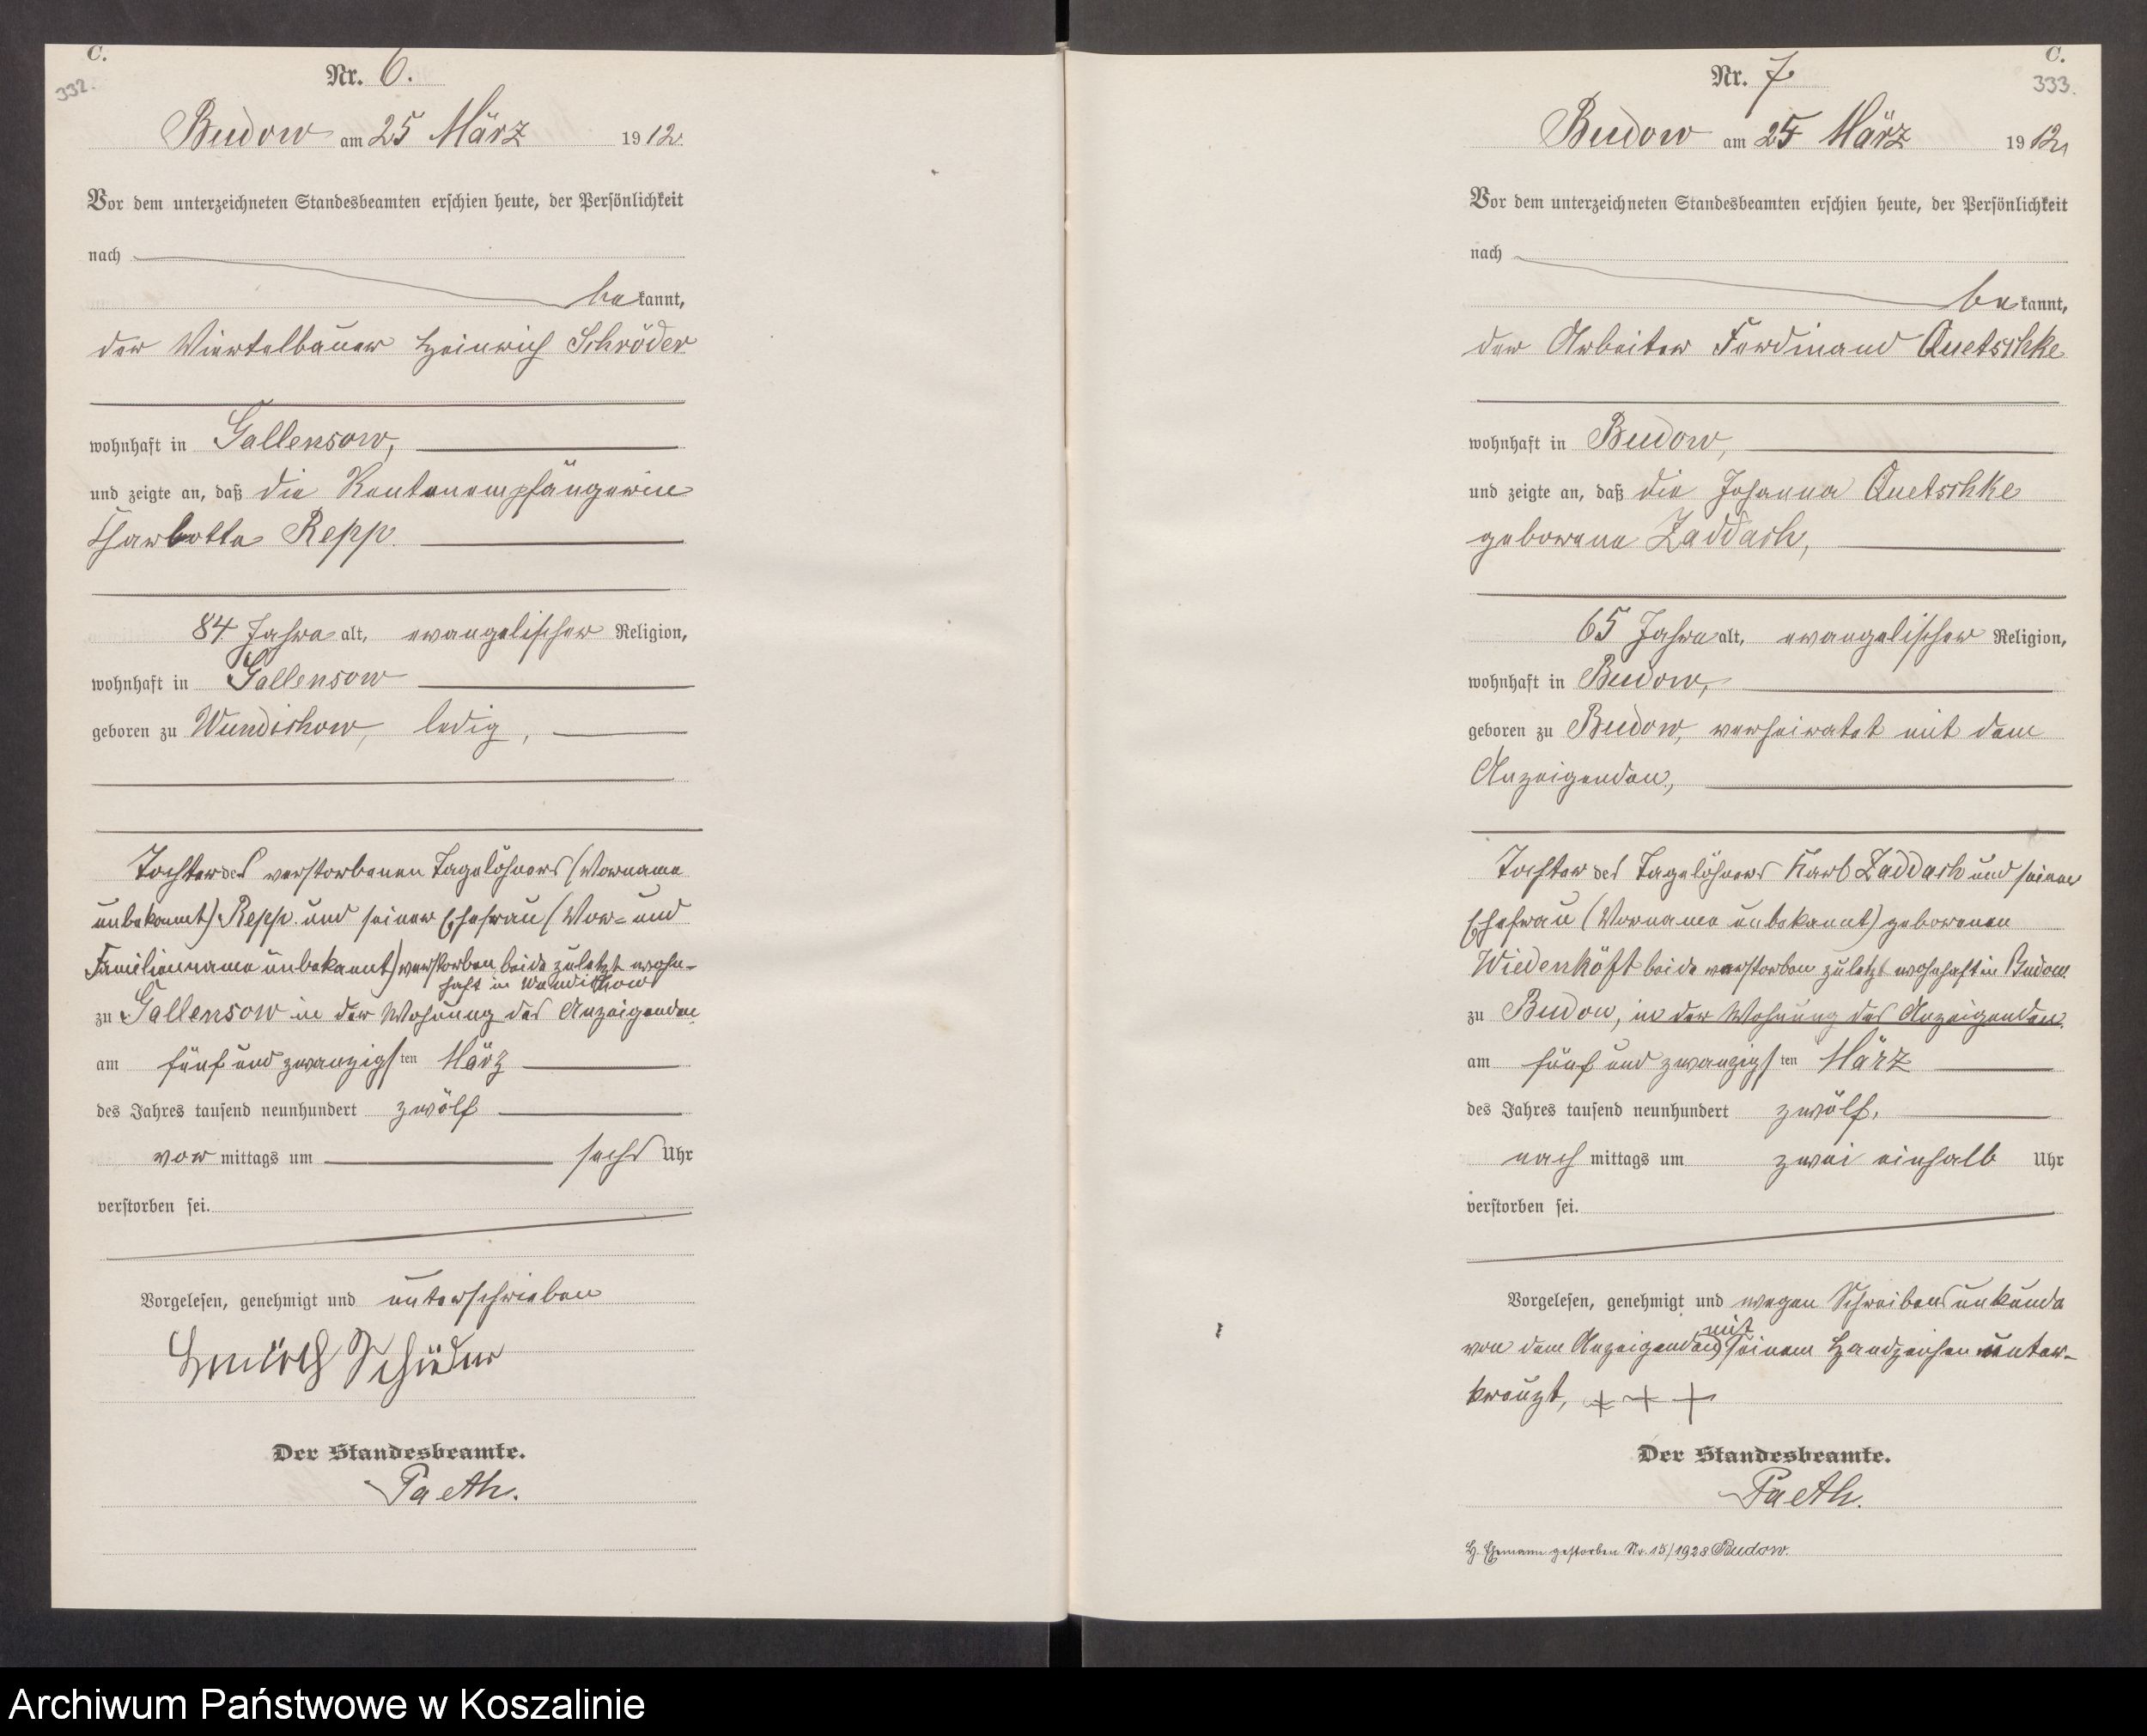 C.
332.
Nr. 6.
Budow am 25 März 1912.
Vor dem unterzeichneten Standesbeamten erschien heute, der Persönlichkeit
nach
bekannt,
der Viertelbauer Heinrich Schröder
wohnhaft in Gallensow,
und zeigte an, daß die Rentenempfängerin
Charlotte Repp.
84 Jahre alt, evangelischer Religion,
wohnhaft in Gallensow
geboren zu Wundichow, ledig,
Tochter des verstorbenen Tagelöhners (Vorname
unbekannt) Repp und seiner Ehefrau (Vor= und
Familienname unbekannt) verstorben beide zuletzt wohn-
haft in Wundichow
zu Gallensow in der Wohnung des Anzeigenden
am fünf und zwanzigsten März
des Jahres tausend neunhundert zwölf
vor mittags um sechs Uhr
verstorben sei.
Vorgelesen, genehmigt und unterschrieben
Heinrich Schröder
Der Standesbeamte.
Paeth.
C.
333.
Nr. 7
Budow am 25 März 1912
Vor dem unterzeichneten Standesbeamten erschien heute, der Persönlichkeit
nach
bekannt,
der Arbeiter Ferdinand Quetschke
wohnhaft in Budow,
und zeigte an, daß die Johanna Quetschke
geborene Zaddach,
65 Jahre alt, evangelischer Religion,
wohnhaft in Budow,
geboren zu Budow, verheiratet mit dem
Anzeigenden,
Tochter des Tagelöhners Karl Zaddach und seiner
Ehefrau (Vorname unbekannt) geborenen
Wiedenhöft beide verstorben zuletzt wohnhaft in Budow
zu Budow, in der Wohnung des Anzeigenden.
am fünf und zwanzigsten März
des Jahres tausend neunhundert zwölf,
nach mittags um zwei einhalb Uhr
verstorben sei.
Vorgelesen, genehmigt und wegen Schreibensunkunde
von dem Anzeigenden mit seinem Handzeichen unter-
kreuzt, + + +
Der Standesbeamte.
Paeth.
H. Ehemann gestorben Nr. 15/1928 Budow.
Archiwum Państwowe w Koszalinie